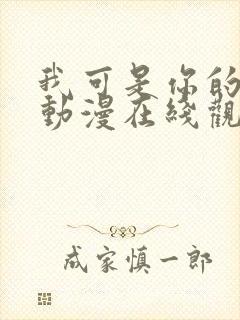 我可是你的
動漫在綫觀
成家慎一郎